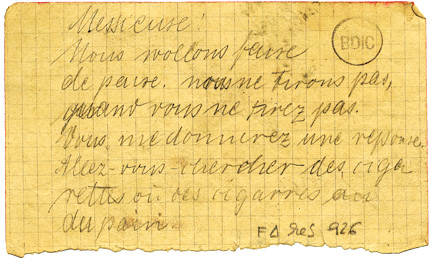 Messieuse!
BDIC
Nous wollons faire
de paire. nous ne tirons pas,
quand vous ne tirez pas.
Vous me donnerez une reponse.
Allez-vous-chercher des ciga
rettes ou des cigarres
du pain
F∆ Rés 926